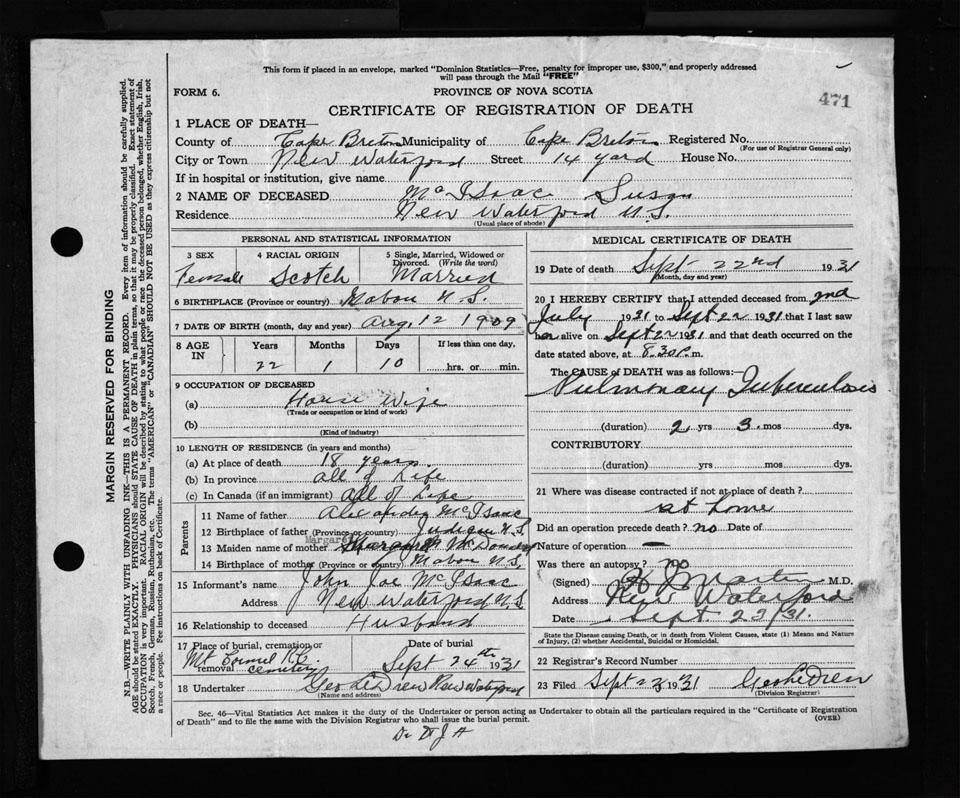 This form if placed in an envelope, marked "Dominion Statistics—Free, penalty for improper use, $300," and properly addressed
will pass through the Mail "FREE"
FORM 6.
PROVINCE OF NOVA SCOTIA
471
CERTIFICATE OF REGISTRATION OF DEATH
1 PLACE OF DEATH—
County of Cape Breton Municipality of Cape Breton Registered No.
(For use of Registrar General only)
City or Town New Waterford Street 14 yard House No.
If in hospital or institution, give name
2 NAME OF DECEASED McIsaac Susan
Residence New Waterford N.S.
(Usual place of abode)
PERSONAL AND STATISTICAL INFORMATION
3 SEX 4 RACIAL ORIGIN 5 Single, Married, Widowed or
Divorced. (Write the word)
Female Scotch Married
6 BIRTHPLACE (Province or country) Mabou N.S.
7 DATE OF BIRTH (month, day and year) Aug 12 1909
8 AGE IN Years Months Days If less than one day,
22 1 10 hrs. or min.
9 OCCUPATION OF DECEASED
(a) House Wife
(Trade or occupation or kind of work)
(b)
(Kind of industry)
10 LENGTH OF RESIDENCE (in years and months)
(a) At place of death 18 years
(b) In province all of Life
(c) In Canada (if an immigrant) all of Life
Parents
11 Name of father Alexander McIsaac
12 Birthplace of father (Province or country) Judique N.S.
Margaret
13 Maiden name of mother Margaret
14 Birthplace of mother (Province or country) Mabou N.S.
15 Informant's name John Joe McIsaac
Address New Waterford N.S
16 Relationship to deceased Husband
17 Place of burial, cremation or removal Date of burial
Mt Carmel R.C. cemetery Sept 24th 1931
18 Undertaker New Waterford
(Name and address)
MEDICAL CERTIFICATE OF DEATH
19 Date of death Sept 22nd 1931
(Month, day and year)
20 I HEREBY CERTIFY that I attended deceased from 2nd
July 1931 to Sept 22 1931 that I last saw
her alive on Sept 22 1931 and that death occurred on the
date stated above, at 8.30 P.m.
The CAUSE of DEATH was as follows:
Pulmonary Tuberculosis
(duration) 2 yrs 3 mos dys.
CONTRIBUTORY
(duration) yrs mos dys.
21 Where was disease contracted if not at place of death?
at home
Did an operation precede death? no Date of
Nature of operation —
Was there an autopsy? no
(Signed) Martin M.D.
Address New Waterford
Date Sept. 23/31.
State the Disease causing Death, or in death from Violent Causes, state (1) Means and Nature
of Injury, (2) whether Accidental, Suicidal or Homicidal.
22 Registrar's Record Number
23 Filed Sept 23 1931
(Division Registrar)
Sec. 46—Vital Statistics Act makes it the duty of the Undertaker or person acting as Undertaker to obtain all the particulars required in the "Certificate of Registration
of Death" and to file the same with the Division Registrar who shall issue the burial permit.
(OVER)
MARGIN RESERVED FOR BINDING
N.B.—WRITE PLAINLY WITH UNFADING INK—THIS IS A PERMANENT RECORD. Every item of information should be carefully supplied.
AGE should be stated EXACTLY. PHYSICIANS should STATE CAUSE OF DEATH in plain terms, so that it may be properly classified. Exact statement of
OCCUPATION is very important. RACIAL ORIGIN will be described by stating to what people or race the deceased person belonged, whether English, Irish,
Scotch, French, German, Russian, Ruthenian, etc. The terms "AMERICAN" or "CANADIAN" SHOULD NOT BE USED as they express citizenship but not
a race or people. Fee instructions on back of Certificate.